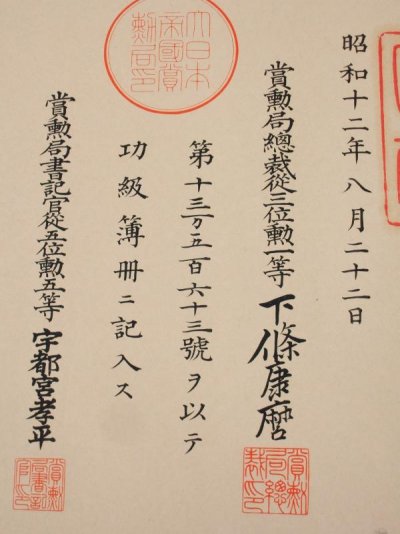 昭和十二年八月二十二日
賞勲局總裁從三位勲一等下條康麿
第十三万五百六十三號ヲ以テ
功級簿冊ニ記入ス
賞勲局書記官從五位勲五等宇都宮孝平
大日本
帝國賞
勲局印
賞勲
局總
裁印
賞勲
局書記
官印